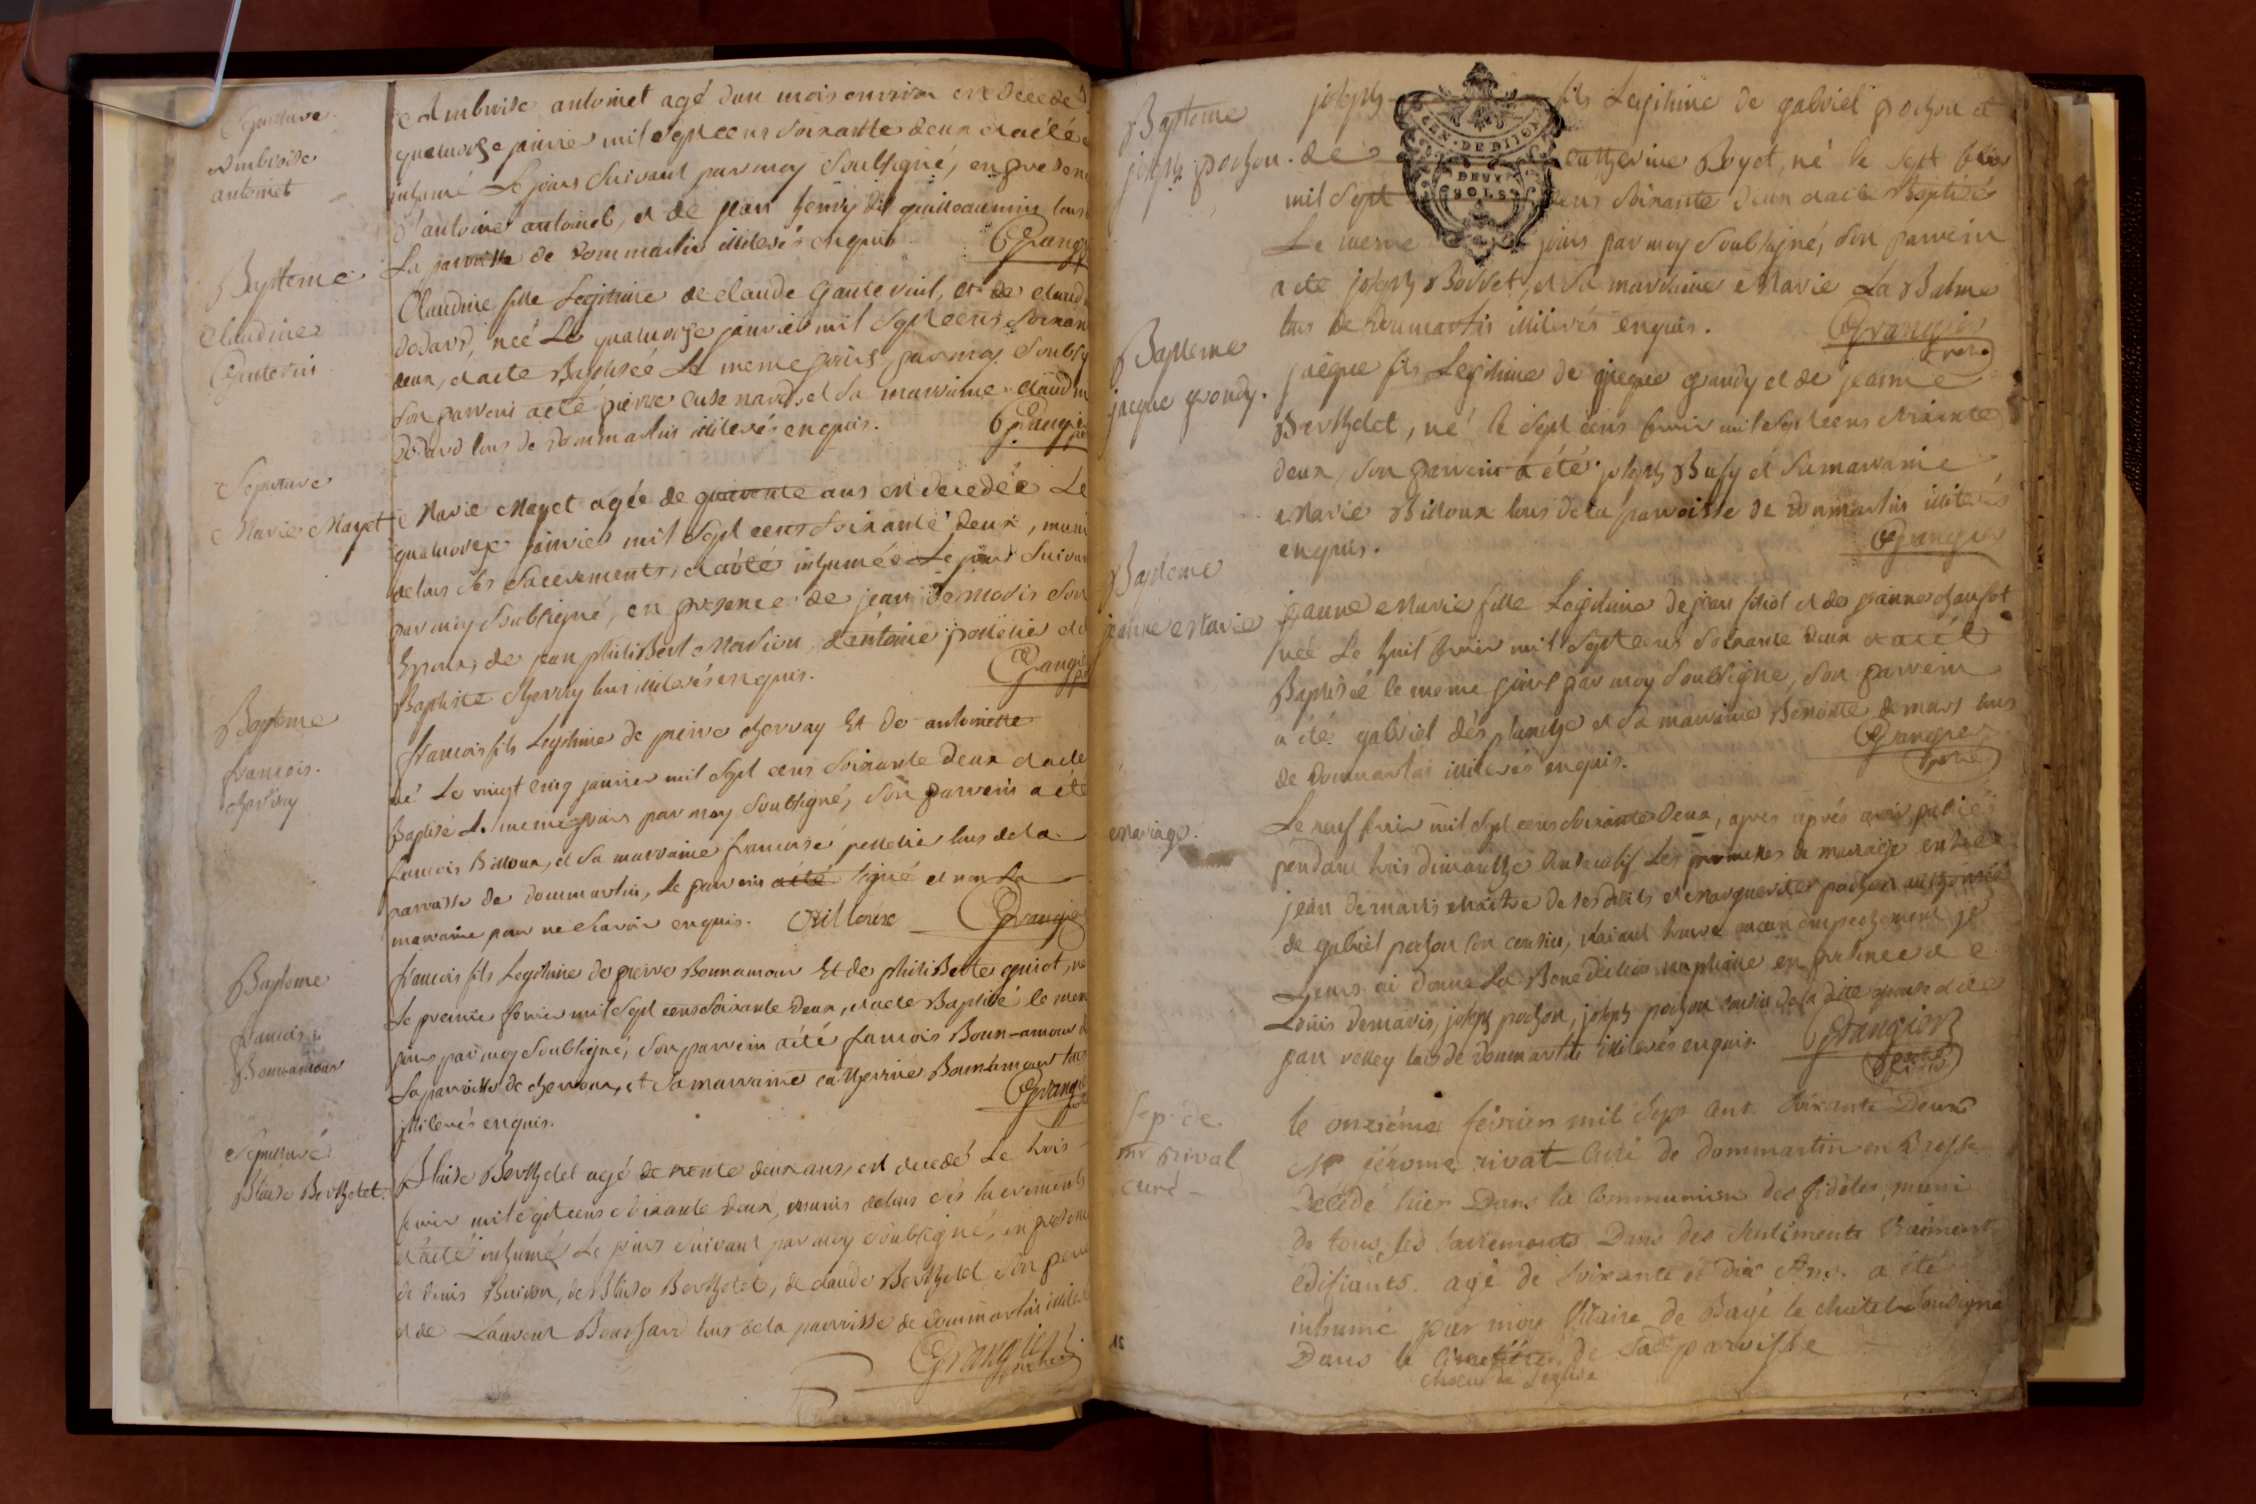 Sepulture
Ambroise
antoinet
Ambroise antoinet agé dun mois environ est decedé
quatorze janvier mil sept cens soixante deux et a été
inhumé Le jours suivant par moy soubsigné, en presen
d'antoine antoinet, et de jean henry dit guilleaumin tous
La parroisse de dommartin illiterés enquis. Grangi
Bapteme
Claudine
Gautevin
Claudine fille Legitime de claude Gautevint, et de claud
dodard, neé Le quatorze janvier mil sept cens soixan
deux, et a ete Baptiseé Le meme jours par moy soubsig
son parrein a eté pierre cusenard, et sa marraine claudin
dodard tous de dommartin illiterés enquis. Grangi
Sepulture
Marie Mayet
Marie Mayet agée de quarente ans est decedée Le
quatorze janvier mil sept cens soixante deux, muni
de tous ses sacerements, et a été inhumée Le jour suivan
par moy soubsigné, en presence de jean demaris son
Epoux, de jean philiBert Mavion, d'entoine pelletie et d
Baptiste chervay tous illiterés enquis. Grangi
Bapteme
francois
chervay
francois fils Legitime de pierre chervay Et de antoinette
né Le vingt cinq janvier mil sept cens soixante deux et a ete
baptisé Le meme jours par moy soubsigné, son parrein a été
francois Billoux, et sa marraine francoise pelletie tous de la
parroisse de dommartin, Le parrein a eté signé et non La
marraine pour ne scavoir enquis. Billoux Grangie
Bapteme
francois
Bonnamour
francois fils Legitime de pierre Bonnamour Et de philiBerte guiot, né
Le premie fevrie mil sept cens soixante deux, et a ete Baptisé le mem
jours par moy soubsigné, son parrein a été francois Bonn-amour d
La parroisse de chevroux, et sa marraine catherine Bonnamour tous
illiterés enquis. Grangi
Sepulture
Blaise Berthelet
Blaise Berthelet agé de trente deux ans est decedé Le trois
fevrie mil sept cens soixante deux, munis de tous ces sacrements
et a été inhumé Le jours suivant par moy soubsigné, en presenc
de denis Buiron, de Blaise Berthelet, de claude Berthelet son pere
et de Laurent Bouchard tous de la parroisse de dommartin illite
Grangier
Bapteme
joseph pochon
joseph fils Legitime de gabriel pochon et
de catherine Boyet, né le sept fevrie
mil sept cens soixante deux et a ete Baptisé
Le meme jours par moy soubsigné, son parrein
a ete joseph Bosset, et sa marraine Marie La Balme
tous de dommartin illiterés enquis. Grangier
GEN. DE DIJON
DEUX
SOLS
Bapteme
jacque gondy.
jacque fils Legitime de jacque gondy et de jeanne
Berthelet, né le sept fevrie mil sept cens soixante
deux, son parrein a été joseph Busy et sa marraine
Marie Billoux tous de la parroisse de dommartin illiterés
enquis. Grangier
Bapteme
jeanne Marie
jeanne Marie fille Legitime de jean filiot et de jeanne chanfot
née Le huit fevrie mil sept cens soixante deux et a eté
Baptisée le meme jours par moy soubsigné, son parrein
a été gabriel des planche et sa marraine Benoite demars tous
de dommartin illiterés enquis. Grangier
Mariage.
Le neuf fevrie mil sept cens soixante deux, apres apres avoir publié
pendant trois dimanche consecutifs Les promesses de mariage entre
jean demaris Maitre de ses droits et Marguerite pochon authorisé
de gabriel pochon son cousin, et aiant trouvé aucun empechement je
Leurs ai donné La Benediction nuptiale en presence de
Louis demaris, joseph pochon, joseph pochon cousin de la dite epouse et de
jean velley tous de dommartin illiterés enquis. Grangier
Sep. de
mr rivat
curé
le onzième fèvrier mil sept cent soixante Deux
Mr jérome rivat Curé de dommartin en Bresse
Décédé hier Dans la Communion des fidèles, muni
de tous ses sacrements Dans des sentiments vraiment
edifiants. agé de soixante et dix Ans. a été
inhumé par moi vicaire de Bagé le chatel soussigné
Dans le cimetière de sad. parroisse
chœur de l'eglise